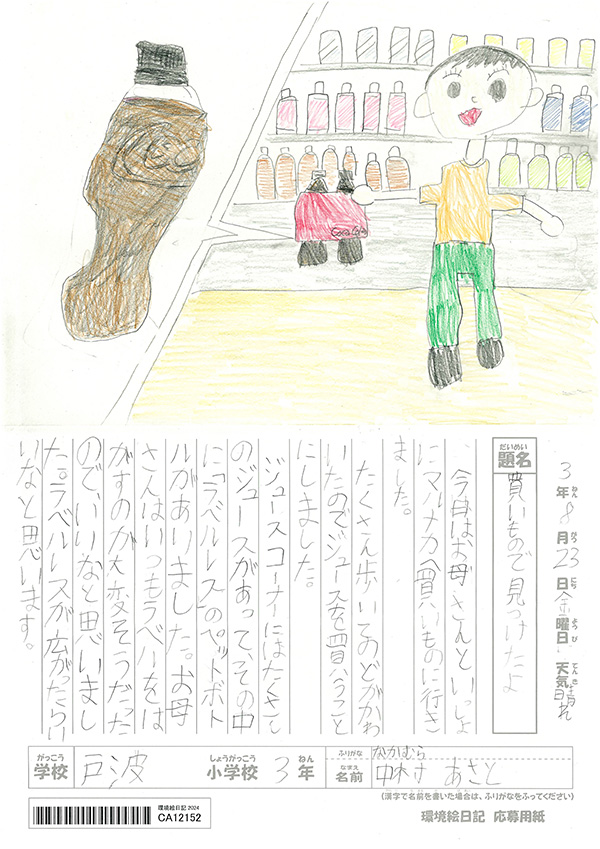 Coca Cola
3年8月23日金曜日 天気晴れ
ねん がつ にち ようび てんき
だいめい
題名 買いもので見つけたよ
今日はお母さんといっしょ
にマルナカへ買いものに行き
ました。
たくさん歩いてのどがかわ
いたのでジュースを買うこと
にしました。
ジュースコーナーにはたくさん
のジュースがあって、その中
に「ラベルレス」のペットボト
ルがありました。お母
さんはいつもラベルをは
がすのが大変そうだった
のでいいなと思いまし
た。ラベルレスが広がったらい
いなと思います。
がっこう しょうがっこう ねん ふりがな なかむら
学校 戸波 小学校 3年
なまえ
名前 中村 あさと
(漢字で名前を書いた場合は、ふりがなをふってください)
環境絵日記 2024
CA12152
環境絵日記 応募用紙